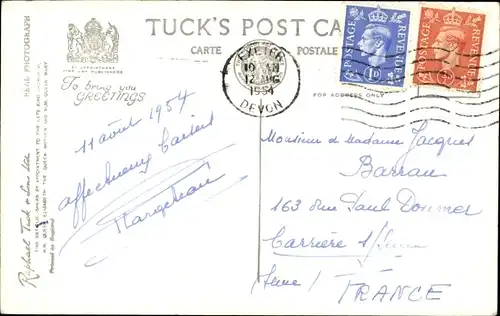 TUCK'S POST CA
CARTE POSTALE
BY APPOINTMENT
FINE ART PUBLISHERS
REAL PHOTOGRAPH
To bring you
GREETINGS
EXETER
10 AM
12 AUG
1954
DEVON
POSTAGE REVENUE
1D
POSTAGE REVENUE
FOR ADDRESS ONLY
11 août 1954
affectueux baisers
Raphael Tuck & Sons Ltd
Printed in England
Monsieur et Madame Jacques
Barrau
163 Rue Paul Doumer
Carrière s/Seine
Seine
FRANCE